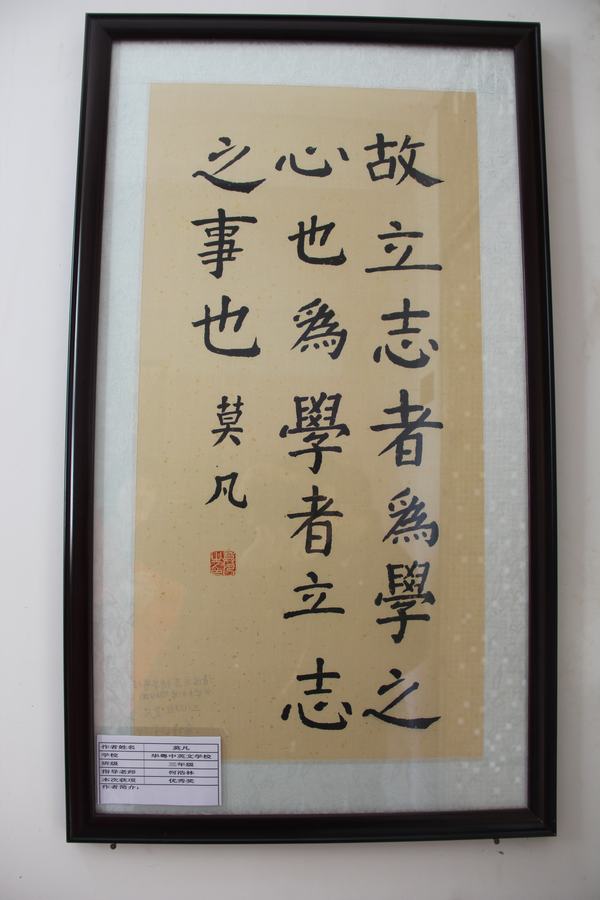 故立志者為學之
心也為學者立志
之事也
莫凡
作者姓名 莫凡
学校 华粤中英文学校
班级 三年级
指导老师 何浩林
本次获项 优秀奖
作者简介：